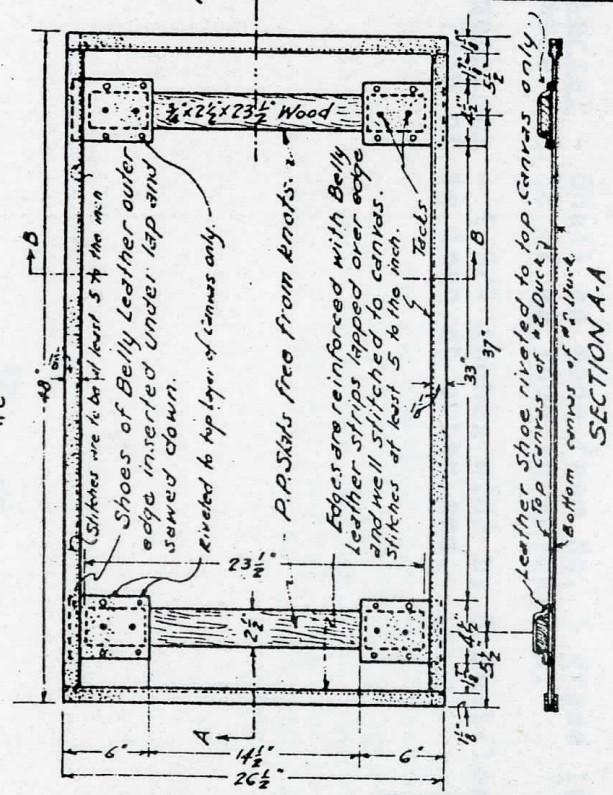 Stitches are to be at least 5 to the inch
Shoes of Belly Leather outer
edge inserted under lap and
sewed down.
Riveted to top layer of canvas only.
P.P. Slats free from Knots.
Edges are reinforced with Belly
Leather strips lapped over edge
and well stitched to canvas.
Stitches at least 5 to the inch.
Tacks
3/4"x2 1/2x23 1/2" Wood
2 1/2
23 1/2"
48"
B
B
A
6"
14 1/2"
6"
26 1/2"
1 1/8"
5 1/2
4 1/2
33"
37"
4 1/2"
5 1/2
1 1/8"
Leather Shoe riveted to top Canvas only
Top Canvas of #2 Duck
Bottom canvas of #2 Duck.
SECTION A-A